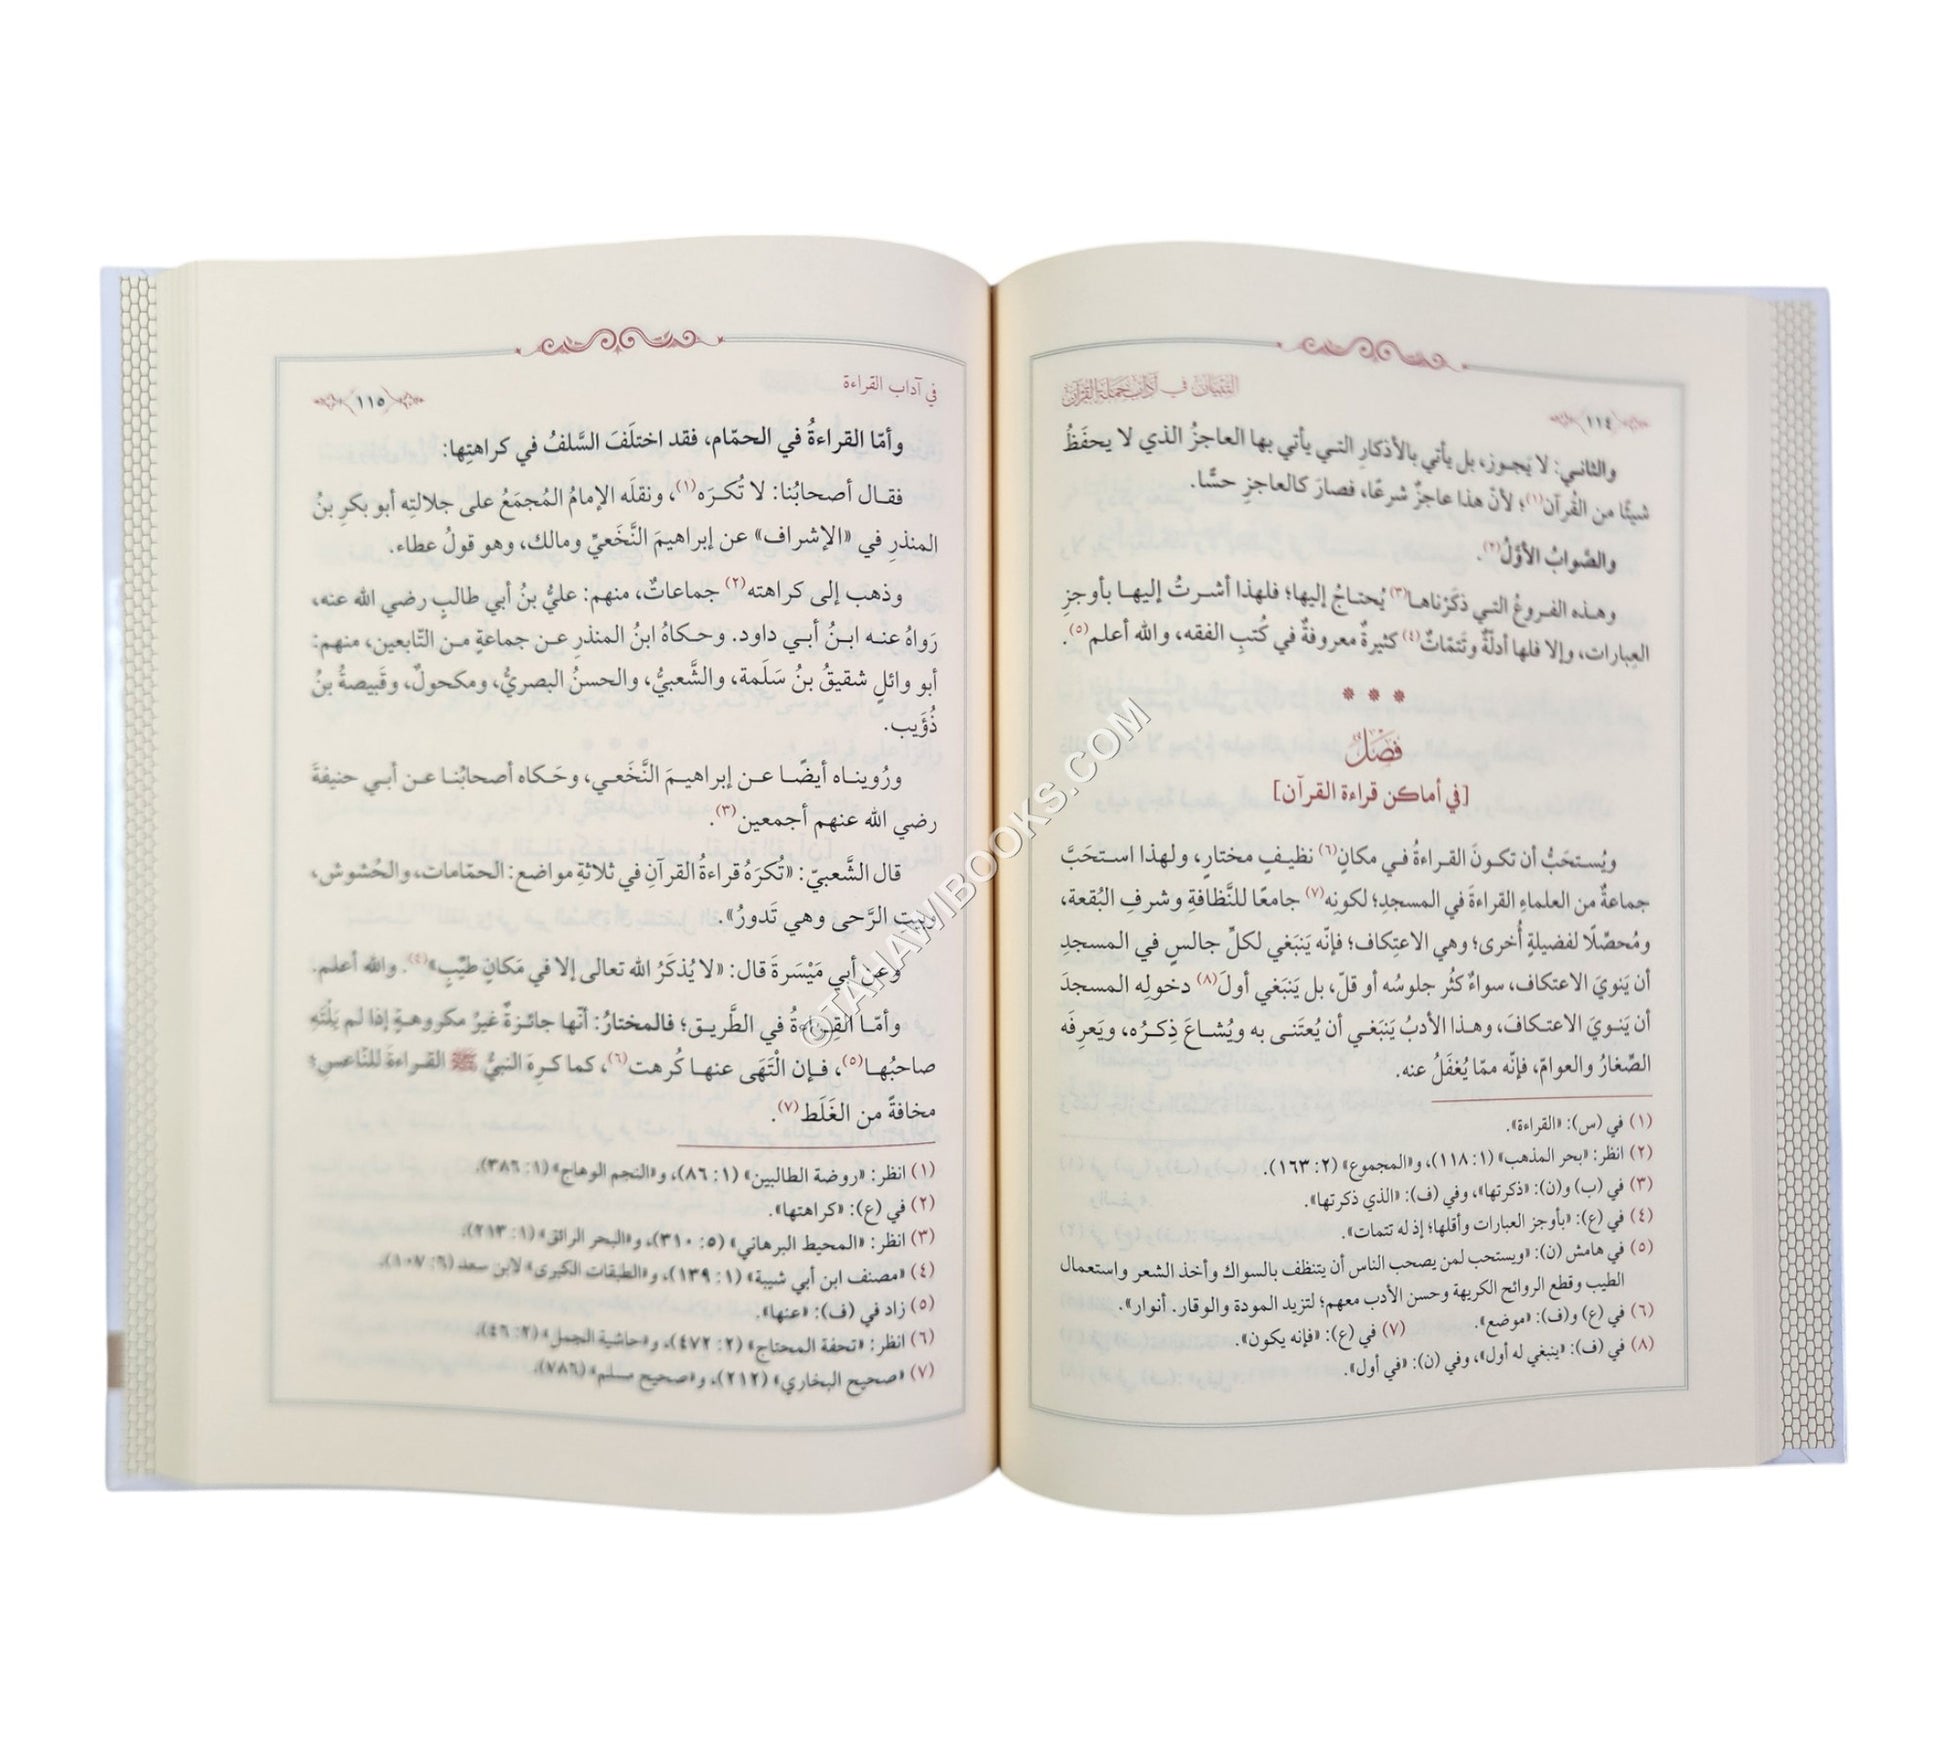 ١١٤
التبيان في آداب حملة القرآن
والثاني: لا يجوز، بل يأتي بالأذكارِ التي يأتي بها العاجزُ الذي لا يحفَظُ
شيئًا من القُرآن(١)؛ لأنّ هذا عاجزٌ شرعًا، فصارَ كالعاجزِ حسًّا.
والصَّوابُ الأوَّلُ(٢).
وهذه الفروعُ التي ذكَرْناها(٣) يُحتاجُ إليها؛ فلهذا أشرتُ إليها بأوجزِ
العِبارات، وإلا فلها أدلّةٌ وتَتمّاتٌ(٤) كثيرةٌ معروفةٌ في كُتبِ الفقه، والله أعلم(٥).
* * *
فَصْلٌ
[في أماكن قراءة القرآن]
ويُستحَبُّ أن تكونَ القراءةُ في مكانٍ(٦) نظيفٍ مختارٍ، ولهذا استحَبَّ
جماعةٌ من العلماءِ القراءةَ في المسجدِ؛ لكونِه(٧) جامعًا للنَّظافةِ وشرفِ البُقعة،
ومُحصِّلًا لفضيلةٍ أُخرى؛ وهي الاعتِكاف؛ فإنّه يَنبَغي لكلِّ جالسٍ في المسجدِ
أن يَنويَ الاعتكاف، سواءٌ كثُر جلوسُه أو قلّ، بل يَنبَغي أولَ(٨) دخولِه المسجدَ
أن يَنويَ الاعتكافَ، وهذا الأدبُ يَنبَغي أن يُعتَنى به ويُشاعَ ذِكرُه، ويَعرِفَه
الصِّغارُ والعوامّ، فإنّه ممّا يُغفَلُ عنه.
(١) في (س): «القراءة».
(٢) انظر: «بحر المذهب» (١: ١١٨)، و«المجموع» (٢: ١٦٣).
(٣) في (ب) و(ن): «ذكرتها»، وفي (ف): «الذي ذكرتها».
(٤) في (ع): «بأوجز العبارات وأقلها؛ إذ له تتمات».
(٥) في هامش (ن): «ويستحب لمن يصحب الناس أن يتنظف بالسواك وأخذ الشعر واستعمال
الطيب وقطع الروائح الكريهة وحسن الأدب معهم؛ لتزيد المودة والوقار. أنوار».
(٦) في (ع) و(ف): «موضع». (٧) في (ع): «فإنه يكون».
(٨) في (ف): «ينبغي له أول»، وفي (ن): «في أول».
في آداب القراءة
١١٥
وأمّا القراءةُ في الحمّام، فقد اختلَفَ السَّلفُ في كراهتِها:
فقال أصحابُنا: لا تُكرَه(١)، ونقلَه الإمامُ المُجمَعُ على جلالتِه أبو بكرِ بنُ
المنذرِ في «الإشراف» عن إبراهيمَ النَّخَعيِّ ومالك، وهو قولُ عطاء.
وذهب إلى كراهته(٢) جماعاتٌ، منهم: عليُّ بنُ أبي طالبٍ رضي الله عنه،
رَواهُ عنه ابنُ أبي داود. وحكاهُ ابنُ المنذرِ عن جماعةٍ من التّابعين، منهم:
أبو وائلٍ شقيقُ بنُ سَلَمة، والشَّعبيُّ، والحسنُ البصريُّ، ومكحولٌ، وقَبيصةُ بنُ
ذُؤَيب.
ورُويناه أيضًا عن إبراهيمَ النَّخَعي، وحَكاه أصحابُنا عن أبي حنيفةَ
رضي الله عنهم أجمعين(٣).
قال الشَّعبيّ: «تُكرَهُ قراءةُ القرآنِ في ثلاثةِ مواضع: الحمّامات، والحُشوش،
وبيت الرَّحى وهي تَدورُ».
وعن أبي مَيْسَرةَ قال: «لا يُذكَرُ الله تعالى إلا في مَكانٍ طيِّبٍ»(٤). والله أعلم.
وأمّا القِراءةُ في الطَّريق؛ فالمختارُ: أنّها جائزةٌ غيرُ مكروهةٍ إذا لم يَلْتَهِ
صاحبُها(٥)، فإن الْتَهَى عنها كُرهت(٦)، كما كرِهَ النبيُّ ﷺ القراءةَ للنّاعسِ؛
مخافةً من الغَلَط(٧).
(١) انظر: «روضة الطالبين» (١: ٨٦)، و«النجم الوهاج» (١: ٣٨٦).
(٢) في (ع): «كراهتها».
(٣) انظر: «المحيط البرهاني» (٥: ٣١٠)، و«البحر الرائق» (١: ٢١٣).
(٤) «مصنف ابن أبي شيبة» (١: ١٣٩)، و«الطبقات الكبرى» لابن سعد (٦: ١٠٧).
(٥) زاد في (ف): «عنها».
(٦) انظر: «تحفة المحتاج» (٢: ٤٧٢)، و«حاشية الجمل» (٢: ٤٦).
(٧) «صحيح البخاري» (٢١٢)، و«صحيح مسلم» (٧٨٦).
©TAHAWIBOOKS.COM